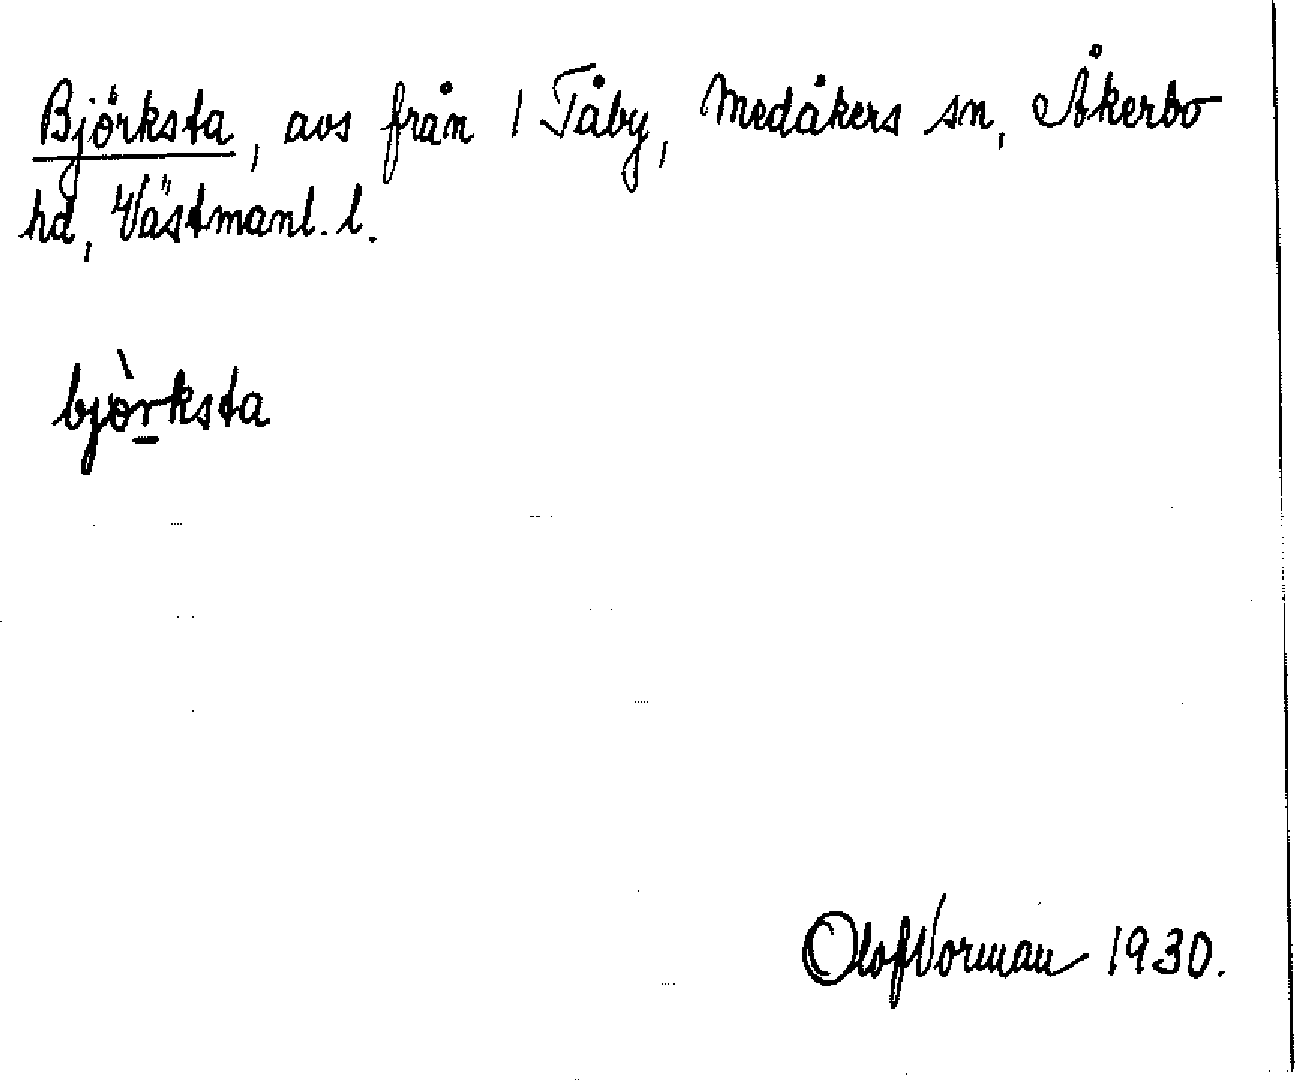 Björksta, avs från 1 Tåby, Medåkers sn, Åkerbo
hd, Västmanl. l.
bjòr̲ksta
Olof Norman 1930.